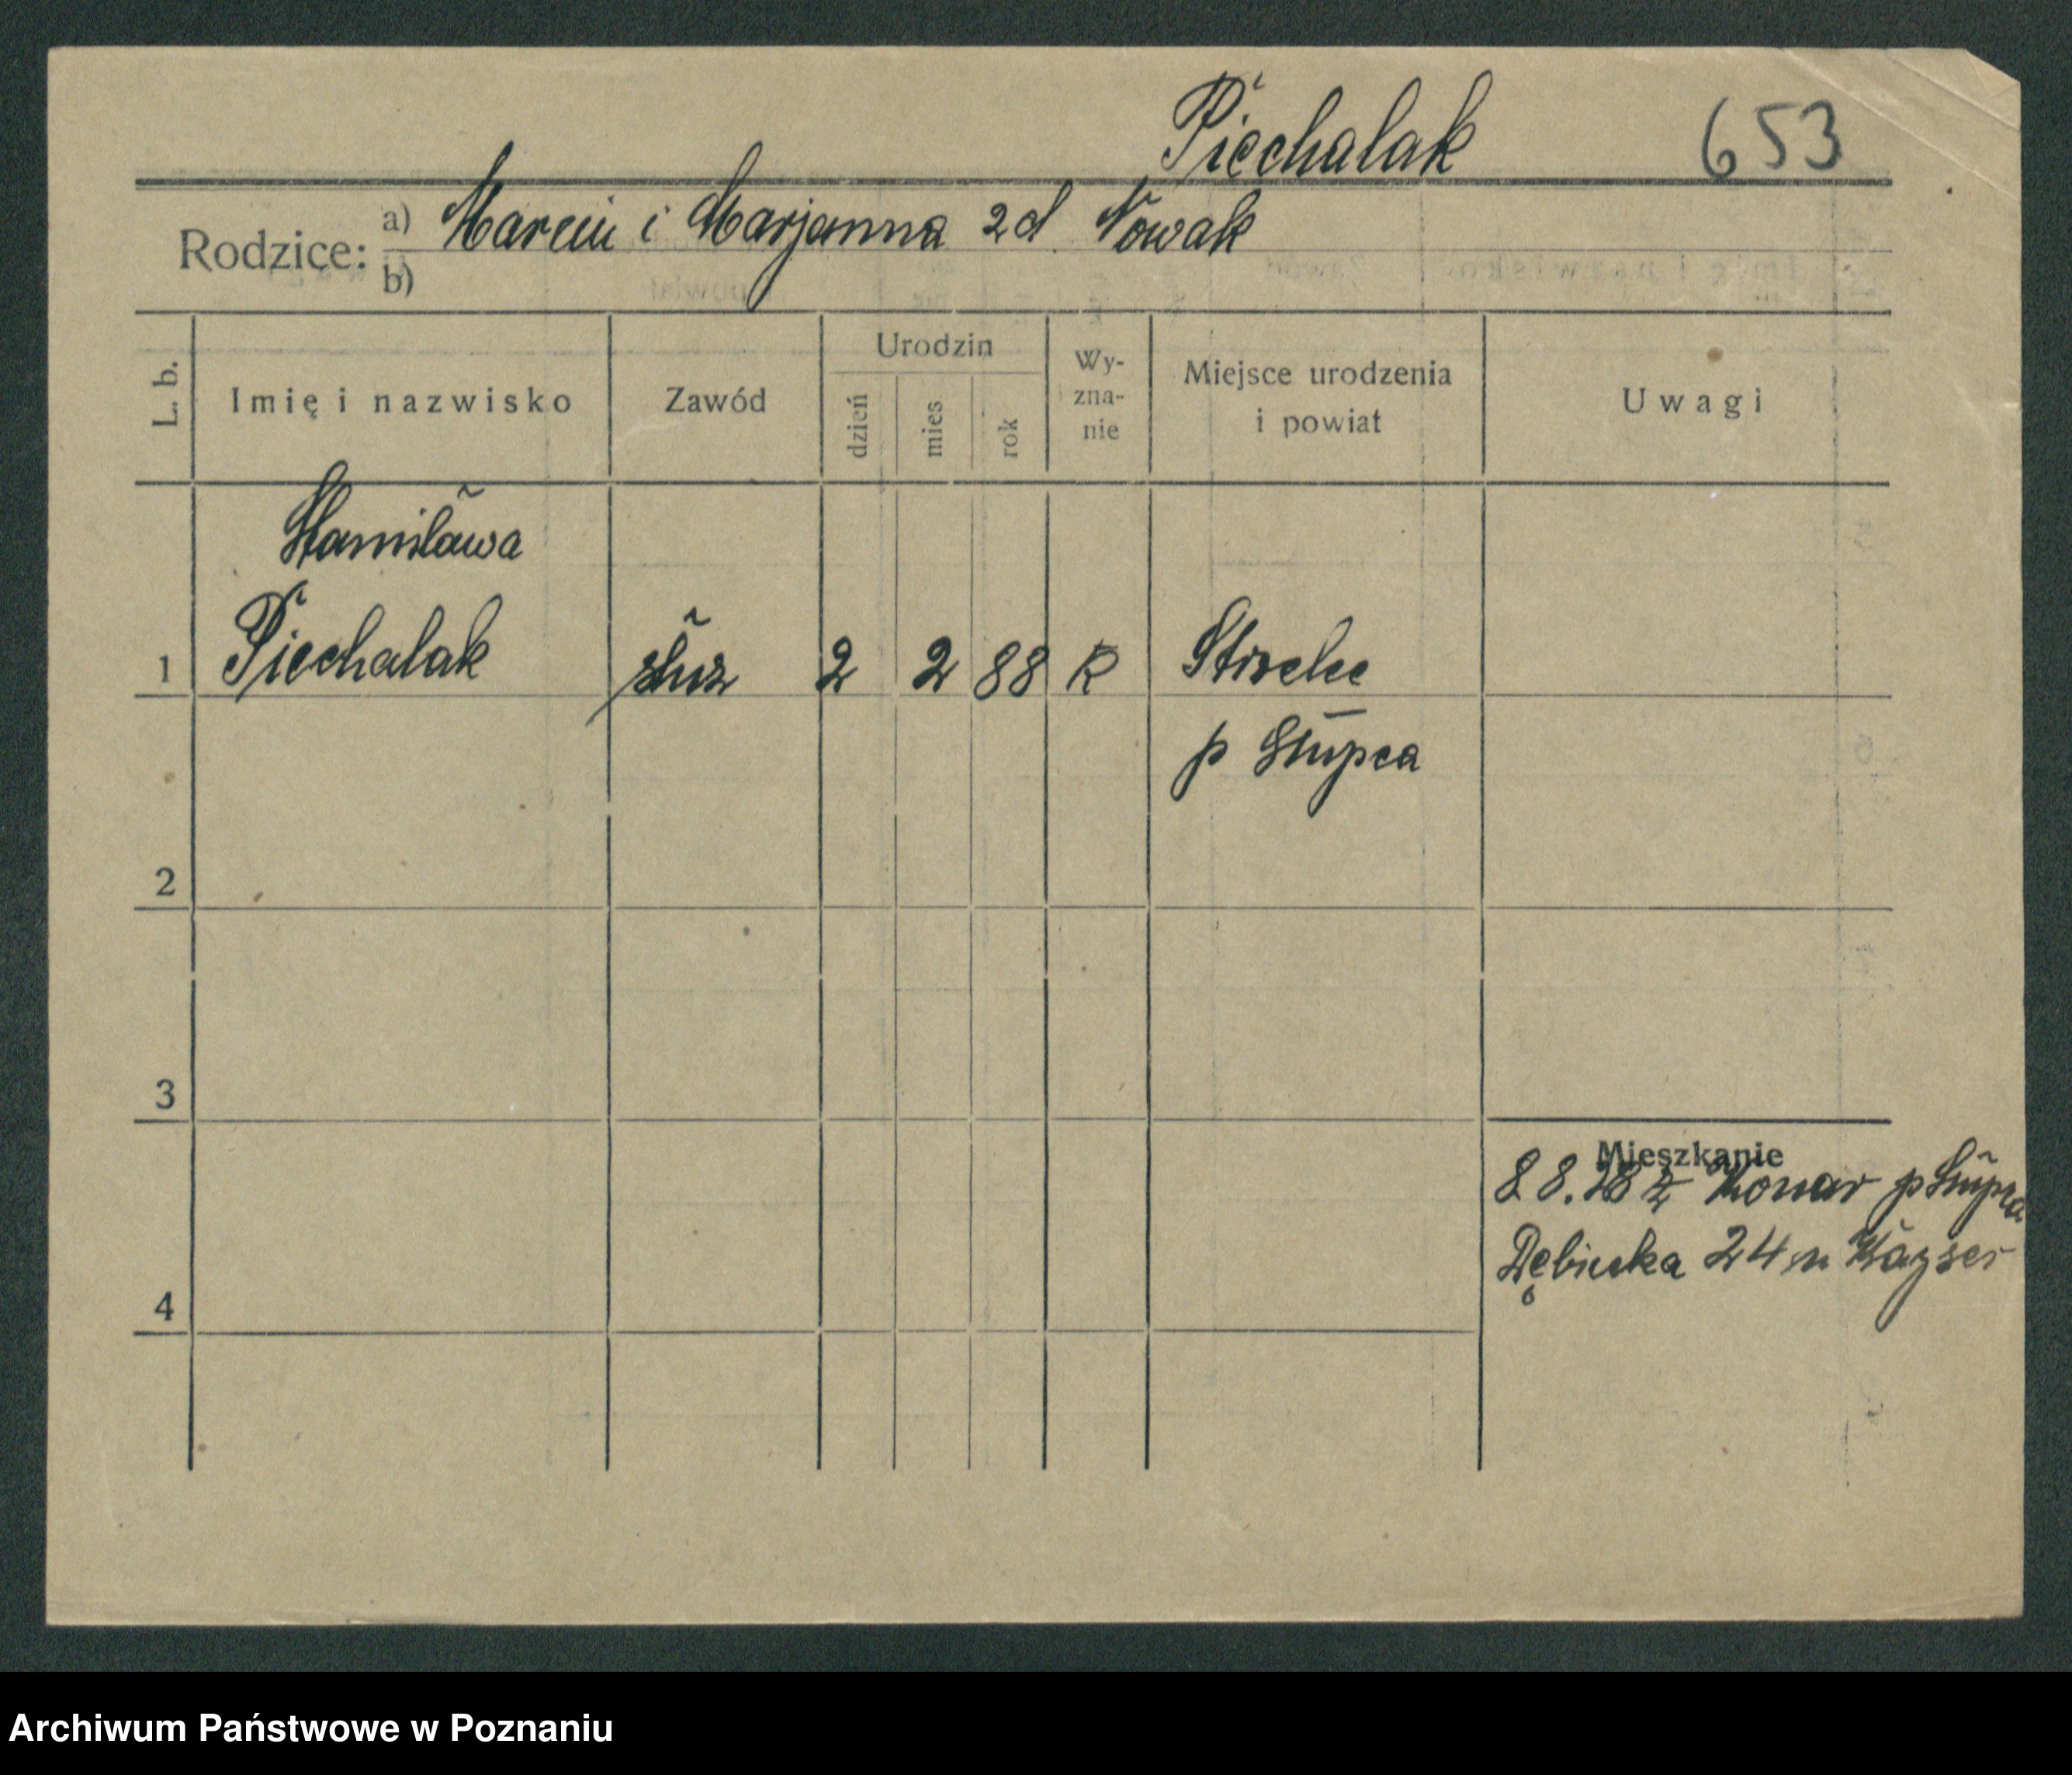 Piechalak 653
Rodzice: a) Marcin i Marjanna zd Nowak
b)
L. b. Imię i nazwisko Zawód Urodzin dzień mies rok Wy-zna-nie Miejsce urodzenia i powiat Uwagi
Stanisława
1 Piechalak służ 2 2 88 R Strzelce
p Słupca
2
3
Mieszkanie
8 8. 28 z Konar p Słupca
Dębińska 24 u Kayser
4
Archiwum Państwowe w Poznaniu